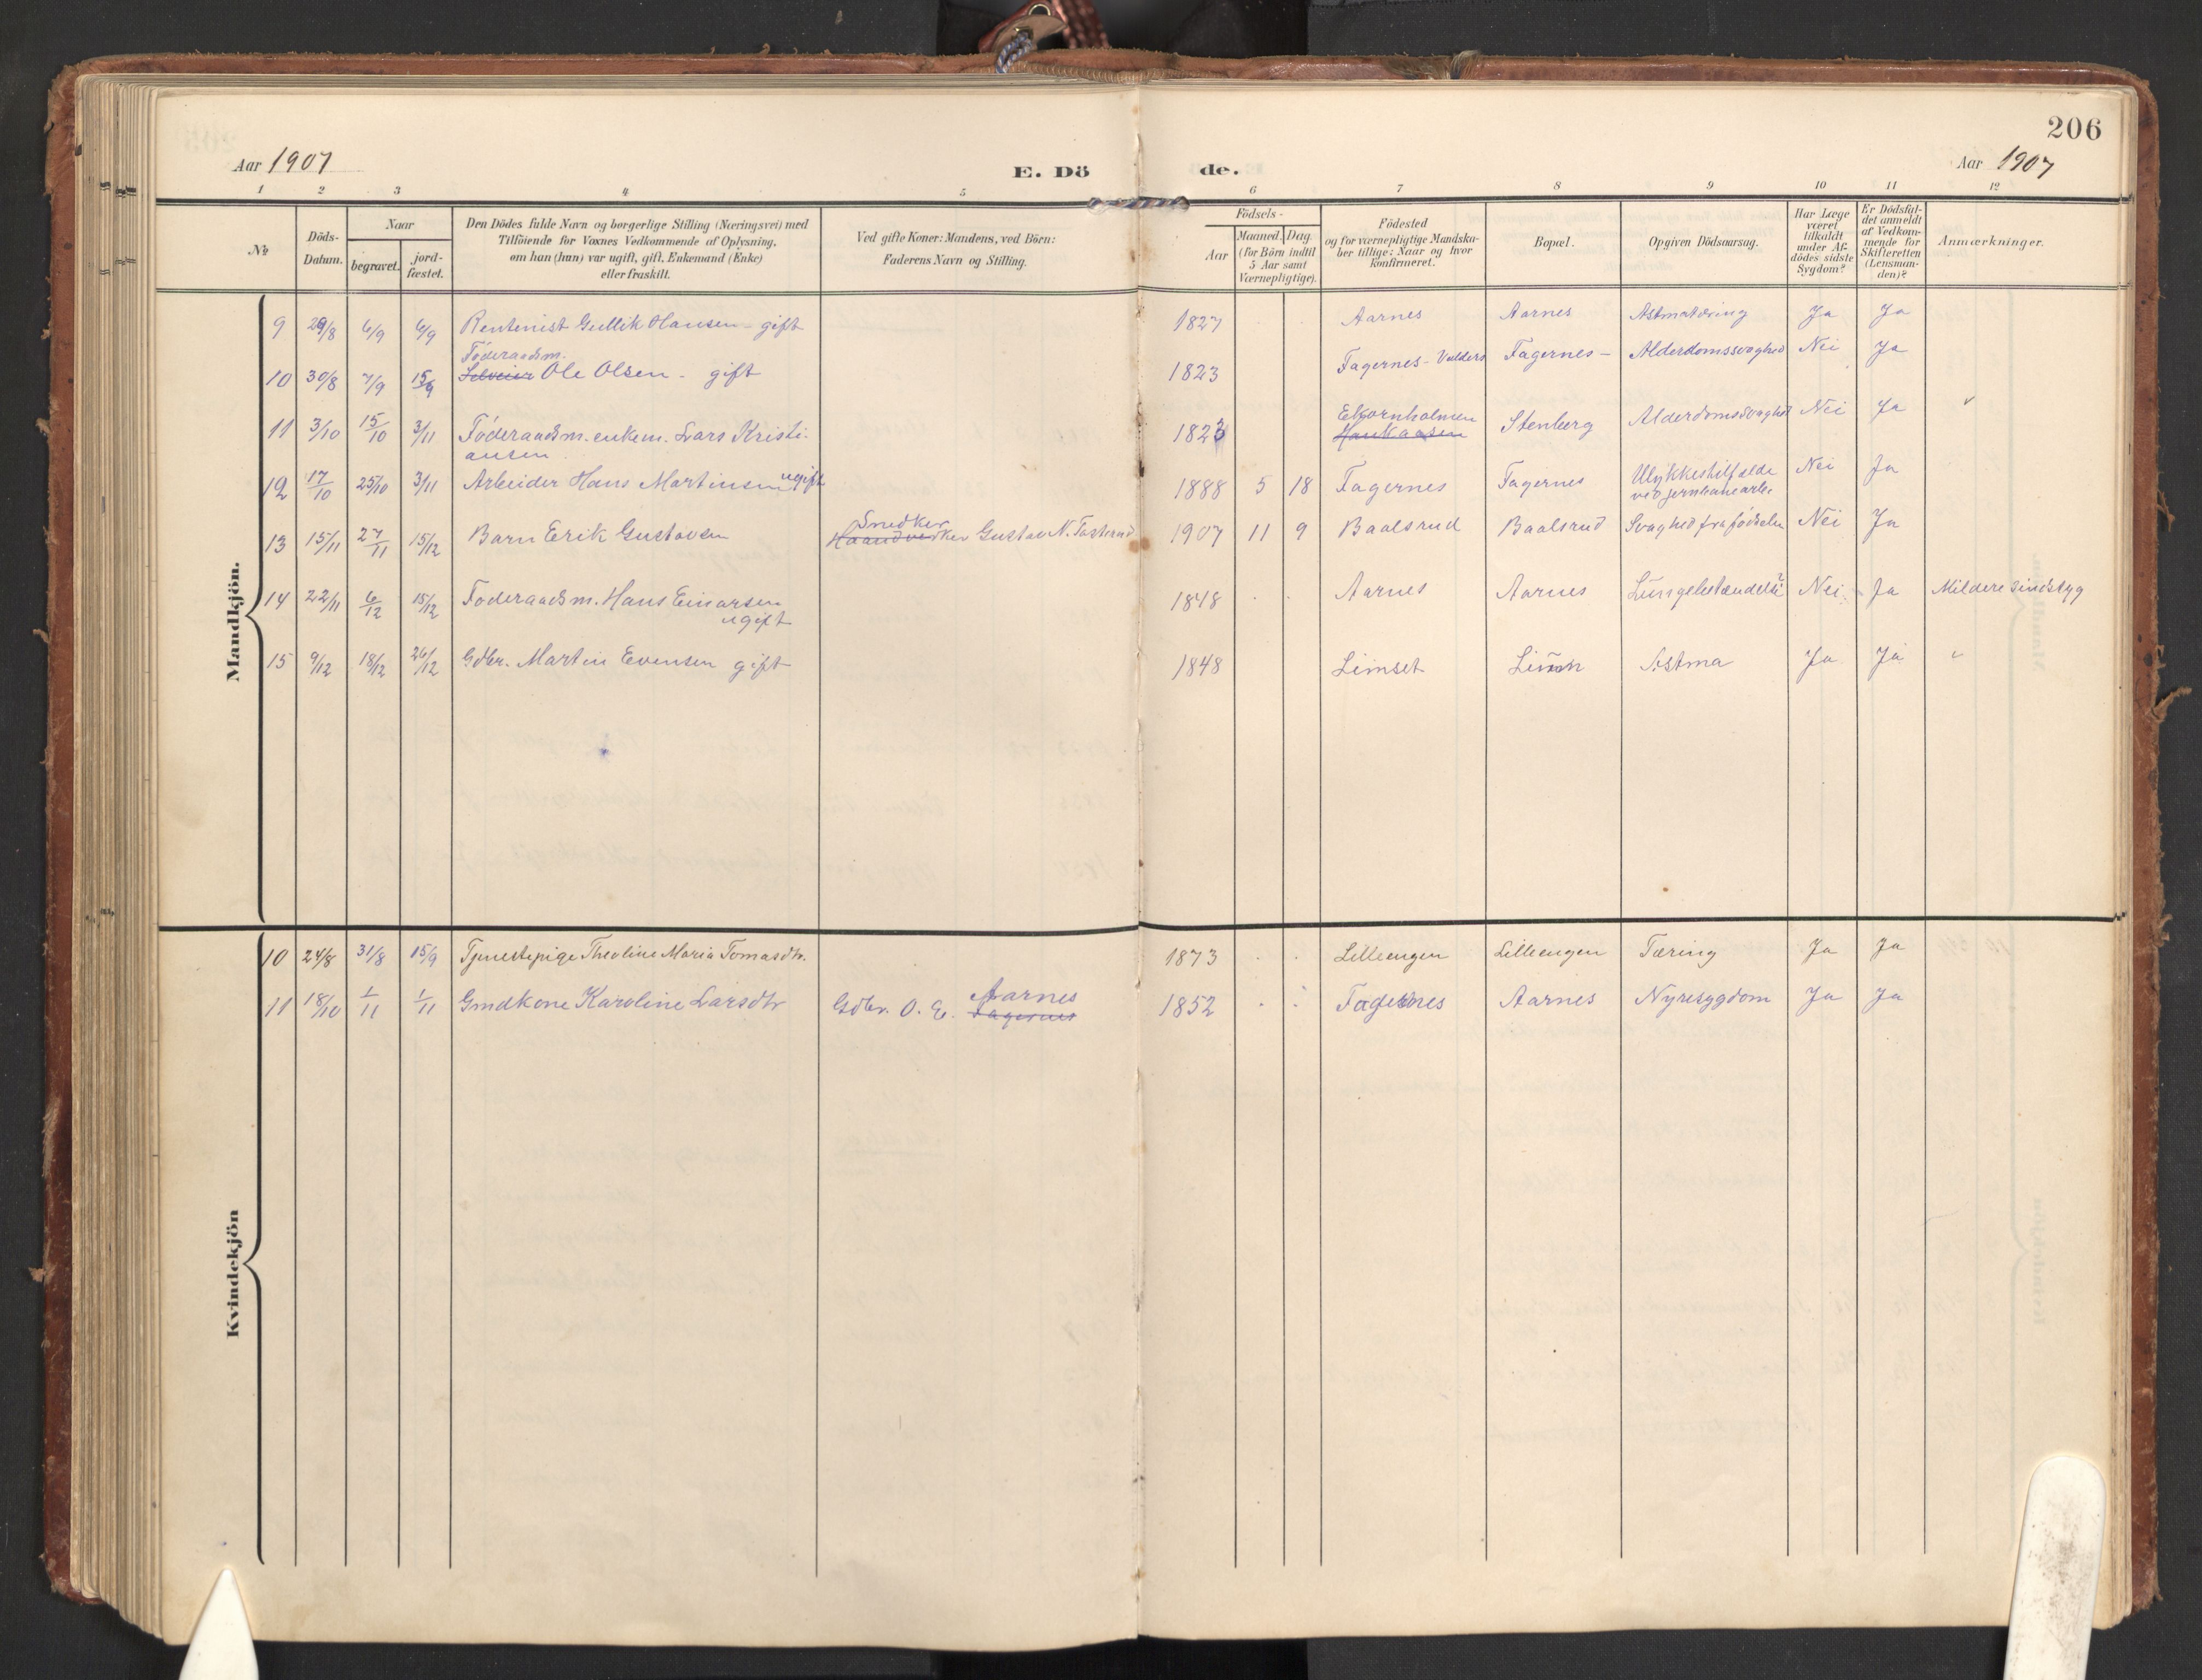 206
Aar 1907
E. Dö
de.
Aar 1907
1 2 3 4 5 6 7 8 9 10 11 12
No
Döds-Datum.
Naar
begravet.
jord-fæstet.
Den Dödes fulde Navn og borgerlige Stilling (Næringsvei) med
Tilföiende for Voxnes Vedkommende af Oplysning,
om han (hun) var ugift, gift, Enkemand (Enke)
eller fraskilt.
Ved gifte Koner: Mandens, ved Börn:
Faderens Navn og Stilling.
Födsels-
Aar
Maaned. Dag.
(for Börn indtil
5 Aar samt
Værnepligtige).
Födested
og for værnepligtige Mandska-
ber tillige: Naar og hvor
konfirmeret.
Bopæl.
Opgiven Dödsaarsag.
Har Læge
været
tilkaldt
under Af-
dödes sidste
Sygdom?
Er Dödsfal-
det anmeldt
af Vedkom-
mende for
Skifteretten
(Lensman-
den)?
Anmærkninger.
Mandkjön.
9 29/8 6/9 6/9 Rentenist Gullik Hansen gift 1827 Aarnes Aarnes Astmatæring Ja Ja
Föderaadsm.
10 30/8 7/9 15/9 Ole Olsen - gift 1823 Fagernes - Valders Fagernes - Alderdomssvaghed Nei Ja
11 3/10 15/10 3/11 Föderaadsm. enkem. Lars Kristi- 1823 Ekornholmen Stenberg Alderdomssvaghed Nei Ja
ansen Haukaasen
12 17/10 25/10 3/11 Arbeider Hans Martinsen ugift 1888 5 18 Fagernes Fagernes Ulykkestilfælde Nei Ja
ved jernbanearbe
Snedker
13 15/11 27/11 15/12 Barn Erik Gustavsen Haandverker Gustav N. 1907 11 9 Baalsrud Baalsrud Svaghed fra födselen Nei Ja
14 22/11 6/12 15/12 Foderaadsm. Hans Einarsen 1848 Aarnes Aarnes Lungebetændelse? Nei Ja Mildere sindssyg
ugift
15 9/12 18/12 26/12 Gdbr. Martin Evensen gift 1848 Limset Astma Ja Ja
Kvindekjön
10 24/8 31/8 15/9 Tjenestepige Theoline Maria Tomasdtr. 1873 Lilleengen Lilleengen Tæring Ja Ja
11 18/10 1/11 1/11 Gmdkone Karoline Larsdtr Gdbr. O. E. Aarnes 1852 Fagernes Aarnes Nyresygdom Ja Ja
Fagernes